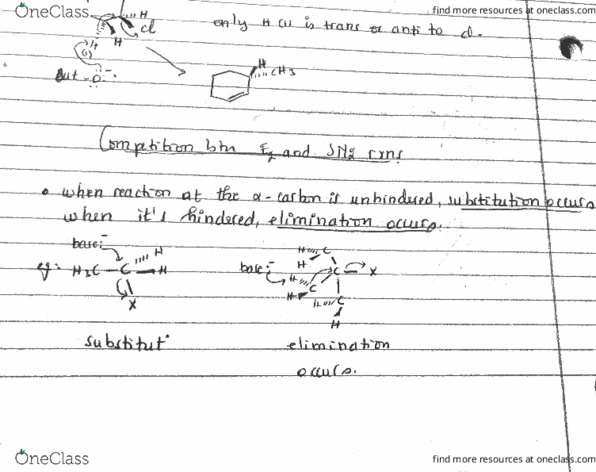 OneClass
find more resources at oneclass.com
H
only H is trans or anti to cl.
cl
H
H
But -O:-
H
CH3
Competition btn E2 and SN2 rxns
• when reaction at the α-carbon is unhindured, substitution occurs
when it's hindered, elimination occurs.
base:-
H
eg: H3C-C-H
X
base:-
H
C
H
H
C
X
H
C
H
C
H
substitut'
elimination
occurs.
OneClass
find more resources at oneclass.com